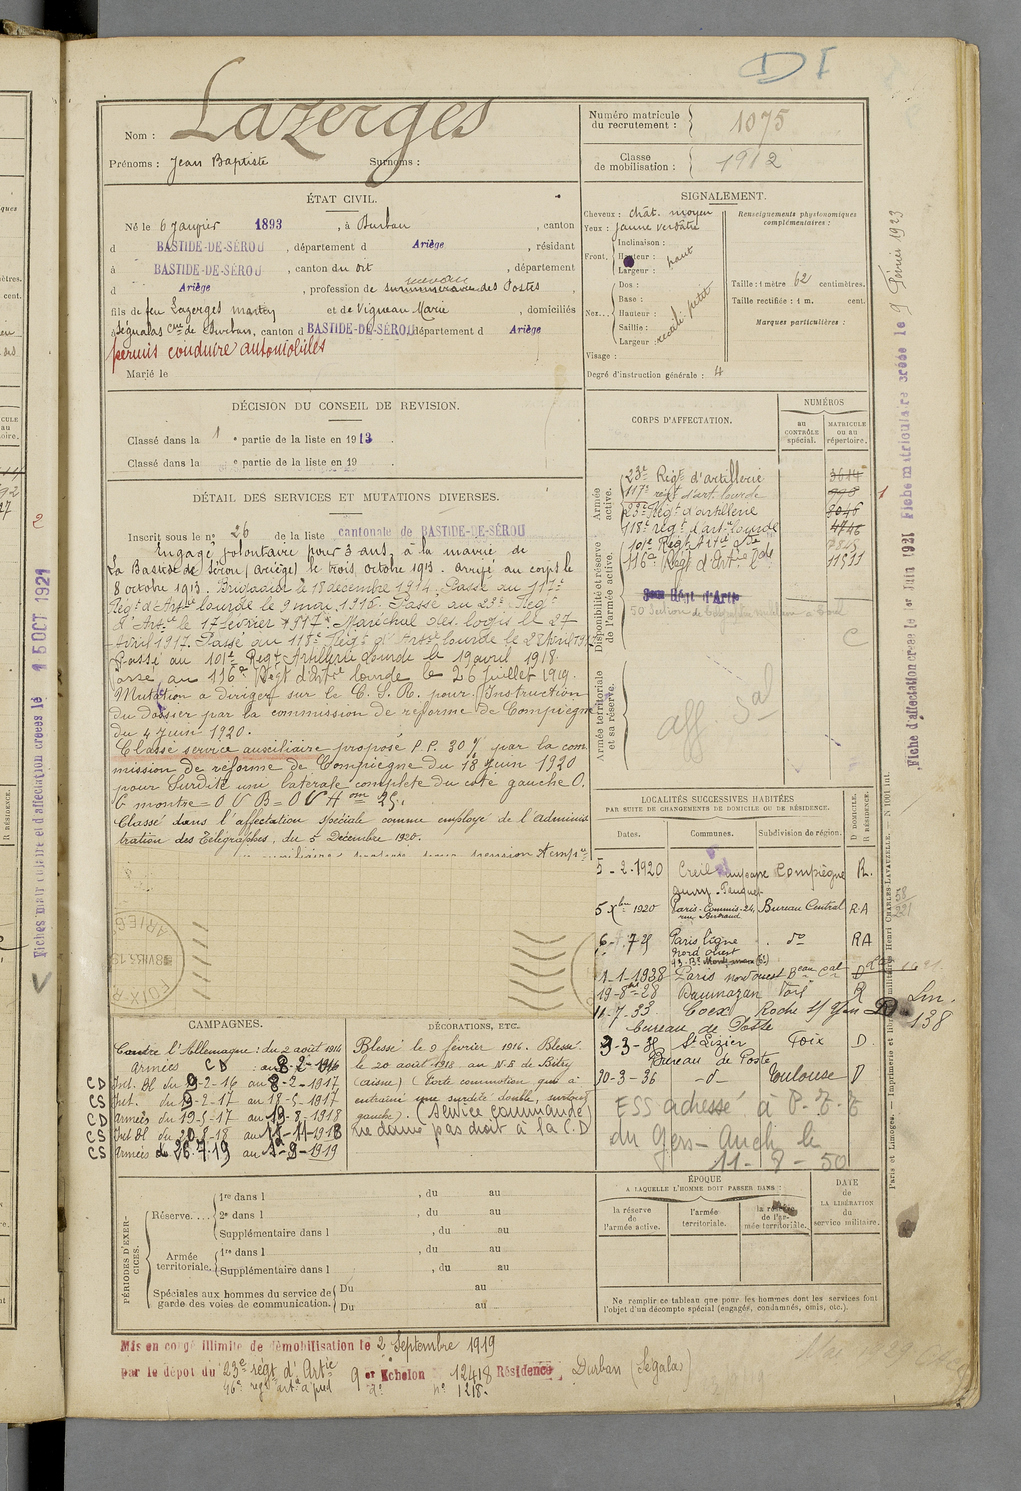 D I
Nom : Lazerges
Prénoms : Jean Baptiste Surnoms :
Numéro matricule du recrutement : 1075
Classe de mobilisation : 1912
ÉTAT CIVIL.
Né le 6 Janvier 1893, à Durban, canton
d BASTIDE-DE-SÉROU, département d Ariège, résidant
à BASTIDE-DE-SÉROU, canton du dit, département
d Ariège, profession de surnuméraire des Postes,
receveur
fils de feu Lazerges Martin et de Vigneau Marie, domiciliés
à Ségalas Cne de Durban, canton d BASTIDE-DE-SÉROU département d Ariège
permis conduire automobiles
Marié le
SIGNALEMENT.
Cheveux : chât. moyen
Yeux : jaune verdâtre
Front. Inclinaison :
Hauteur : haut
Largeur :
Nez... Dos :
Base :
Hauteur :
Saillie :
Largeur :
rectil. petit
Visage :
Degré d'instruction générale : 4
Renseignements physionomiques complémentaires :
Taille : 1 mètre 62 centimètres.
Taille rectifiée : 1 m. cent.
Marques particulières :
DÉCISION DU CONSEIL DE REVISION.
Classé dans la 1 e partie de la liste en 1913.
Classé dans la e partie de la liste en 19 .
DÉTAIL DES SERVICES ET MUTATIONS DIVERSES.
Inscrit sous le n° 26 de la liste cantonale de BASTIDE-DE-SÉROU
Engagé volontaire pour 3 ans, à la mairie de
La Bastide de Sérou (Ariège) le trois octobre 1913. arrivé au corps le
8 octobre 1913. Brigadier le 18 décembre 1914. Passé au 117e
Régt d'Artie lourde le 9 mai 1916. Passé au 23e Régt
d'Artie le 17 février 1917. Maréchal des logis le 27
Avril 1917. Passé au 118e Régt d'Artie lourde le 28 Avril 1917
Passé au 101e Regt Artillerie lourde le 19 avril 1918.
Passé au 116e Regt d'Artie lourde le 26 juillet 1919.
Mutation à diriger sur le C. S. R. pour Instruction
du dossier par la commission de réforme de Compiègne
du 4 juin 1920.
Classé service auxiliaire proposé P.P. 30 % par la com
mission de réforme de Compiègne du 18 juin 1920
pour surdité uni latérale complète du côté gauche O.
G montre = 0 V B = 0 V H
Classé dans l'affectation spéciale comme employé de l'adminis
tration des Télégraphes, du 5 Décembre 1920.
CORPS D'AFFECTATION.
NUMÉROS
au CONTRÔLE spécial.
MATRICULE ou au répertoire.
Armée active.
23e Régt d'artillerie 3614
117e régt d'art. lourde 998
23e Régt d'artillerie 3046
118e régt d'art. lourde 4746
Disponibilité et réserve de l'armée active.
101e Régt Artie Lde
116e Régt d'Artie Lde 11511
C
Armée territoriale et sa réserve.
aff. Sal
LOCALITÉS SUCCESSIVES HABITÉES
PAR SUITE DE CHANGEMENTS DE DOMICILE OU DE RÉSIDENCE.
Dates. Communes. Subdivision de région. D DOMICILE. R RÉSIDENCE.
5 - 2 - 1920 Creil Compiègne R.
5 Xbre 1920 Paris - Commis - 24, rue Bertrand Bureau Central R.A
Paris ligne nord ouest do RA
1-1-1928 Paris nord ouest Beau Cal
19-8-28 R
11-7-33 Coëx Roche s/ Yon D
Bureau de Poste
9-3-35 St Lizier Foix D.
Bureau de Poste
20-3-36 -d- Toulouse D
ESS adressé à P.T.T
du Gers - Auch le
11 - 8 - 50
CAMPAGNES.
Contre l'Allemagne : du 2 août 1914
armées CD au 8-2-1916
CS Int. Bl du 9-2-16 au 8-2-1917
CS Int. du 9-2-17 au 18-5-1917
CD armées du 19-5-17 au 19-8-1918
CS Int Bl du 20-8-18 au 11-11-1918
CS armées de 26.7.19 au 1-9-1919
DÉCORATIONS, ETC.
Blessé le 9 février 1916. Blessé
le 20 août 1918 au N-E de Bitry
(aisne) (forte commotion qui a
entrainé une surdité double, surtout
gauche). (service commandé)
ne donne pas droit à la C.D
PÉRIODES D'EXERCICES.
Réserve.... 1re dans l , du au
2e dans l , du au
Supplémentaire dans l , du au
Armée territoriale. 1re dans l , du au
Supplémentaire dans l , du au
Spéciales aux hommes du service de garde des voies de communication. Du au
Du au
ÉPOQUE
A LAQUELLE L'HOMME DOIT PASSER DANS :
la réserve de l'armée active.
l'armée territoriale.
la réserve de l'armée territoriale.
DATE de LA LIBÉRATION du service militaire.
Ne remplir ce tableau que pour les hommes dont les services font
l'objet d'un décompte spécial (engagés, condamnés, omis, etc.).
Mis en congé illimité de démobilisation le 2 Septembre 1919
par le dépôt du 23e régt d'Artie 9 er Echelon n° 12418 Résidence, Durban (Ségalas)
46e regt artie à pied do n° 1218.
Fiche d'affectation créée le 1er Juin 1921 Fiche matriculaire créée le 9 Février 1923
Paris et Limoges. — Imprimerie et librairie militaires Henri CHARLES-LAVAUZELLE. — N 1001 int.
Fiches matriculaire et d'affectation créées le 15 OCT 1921